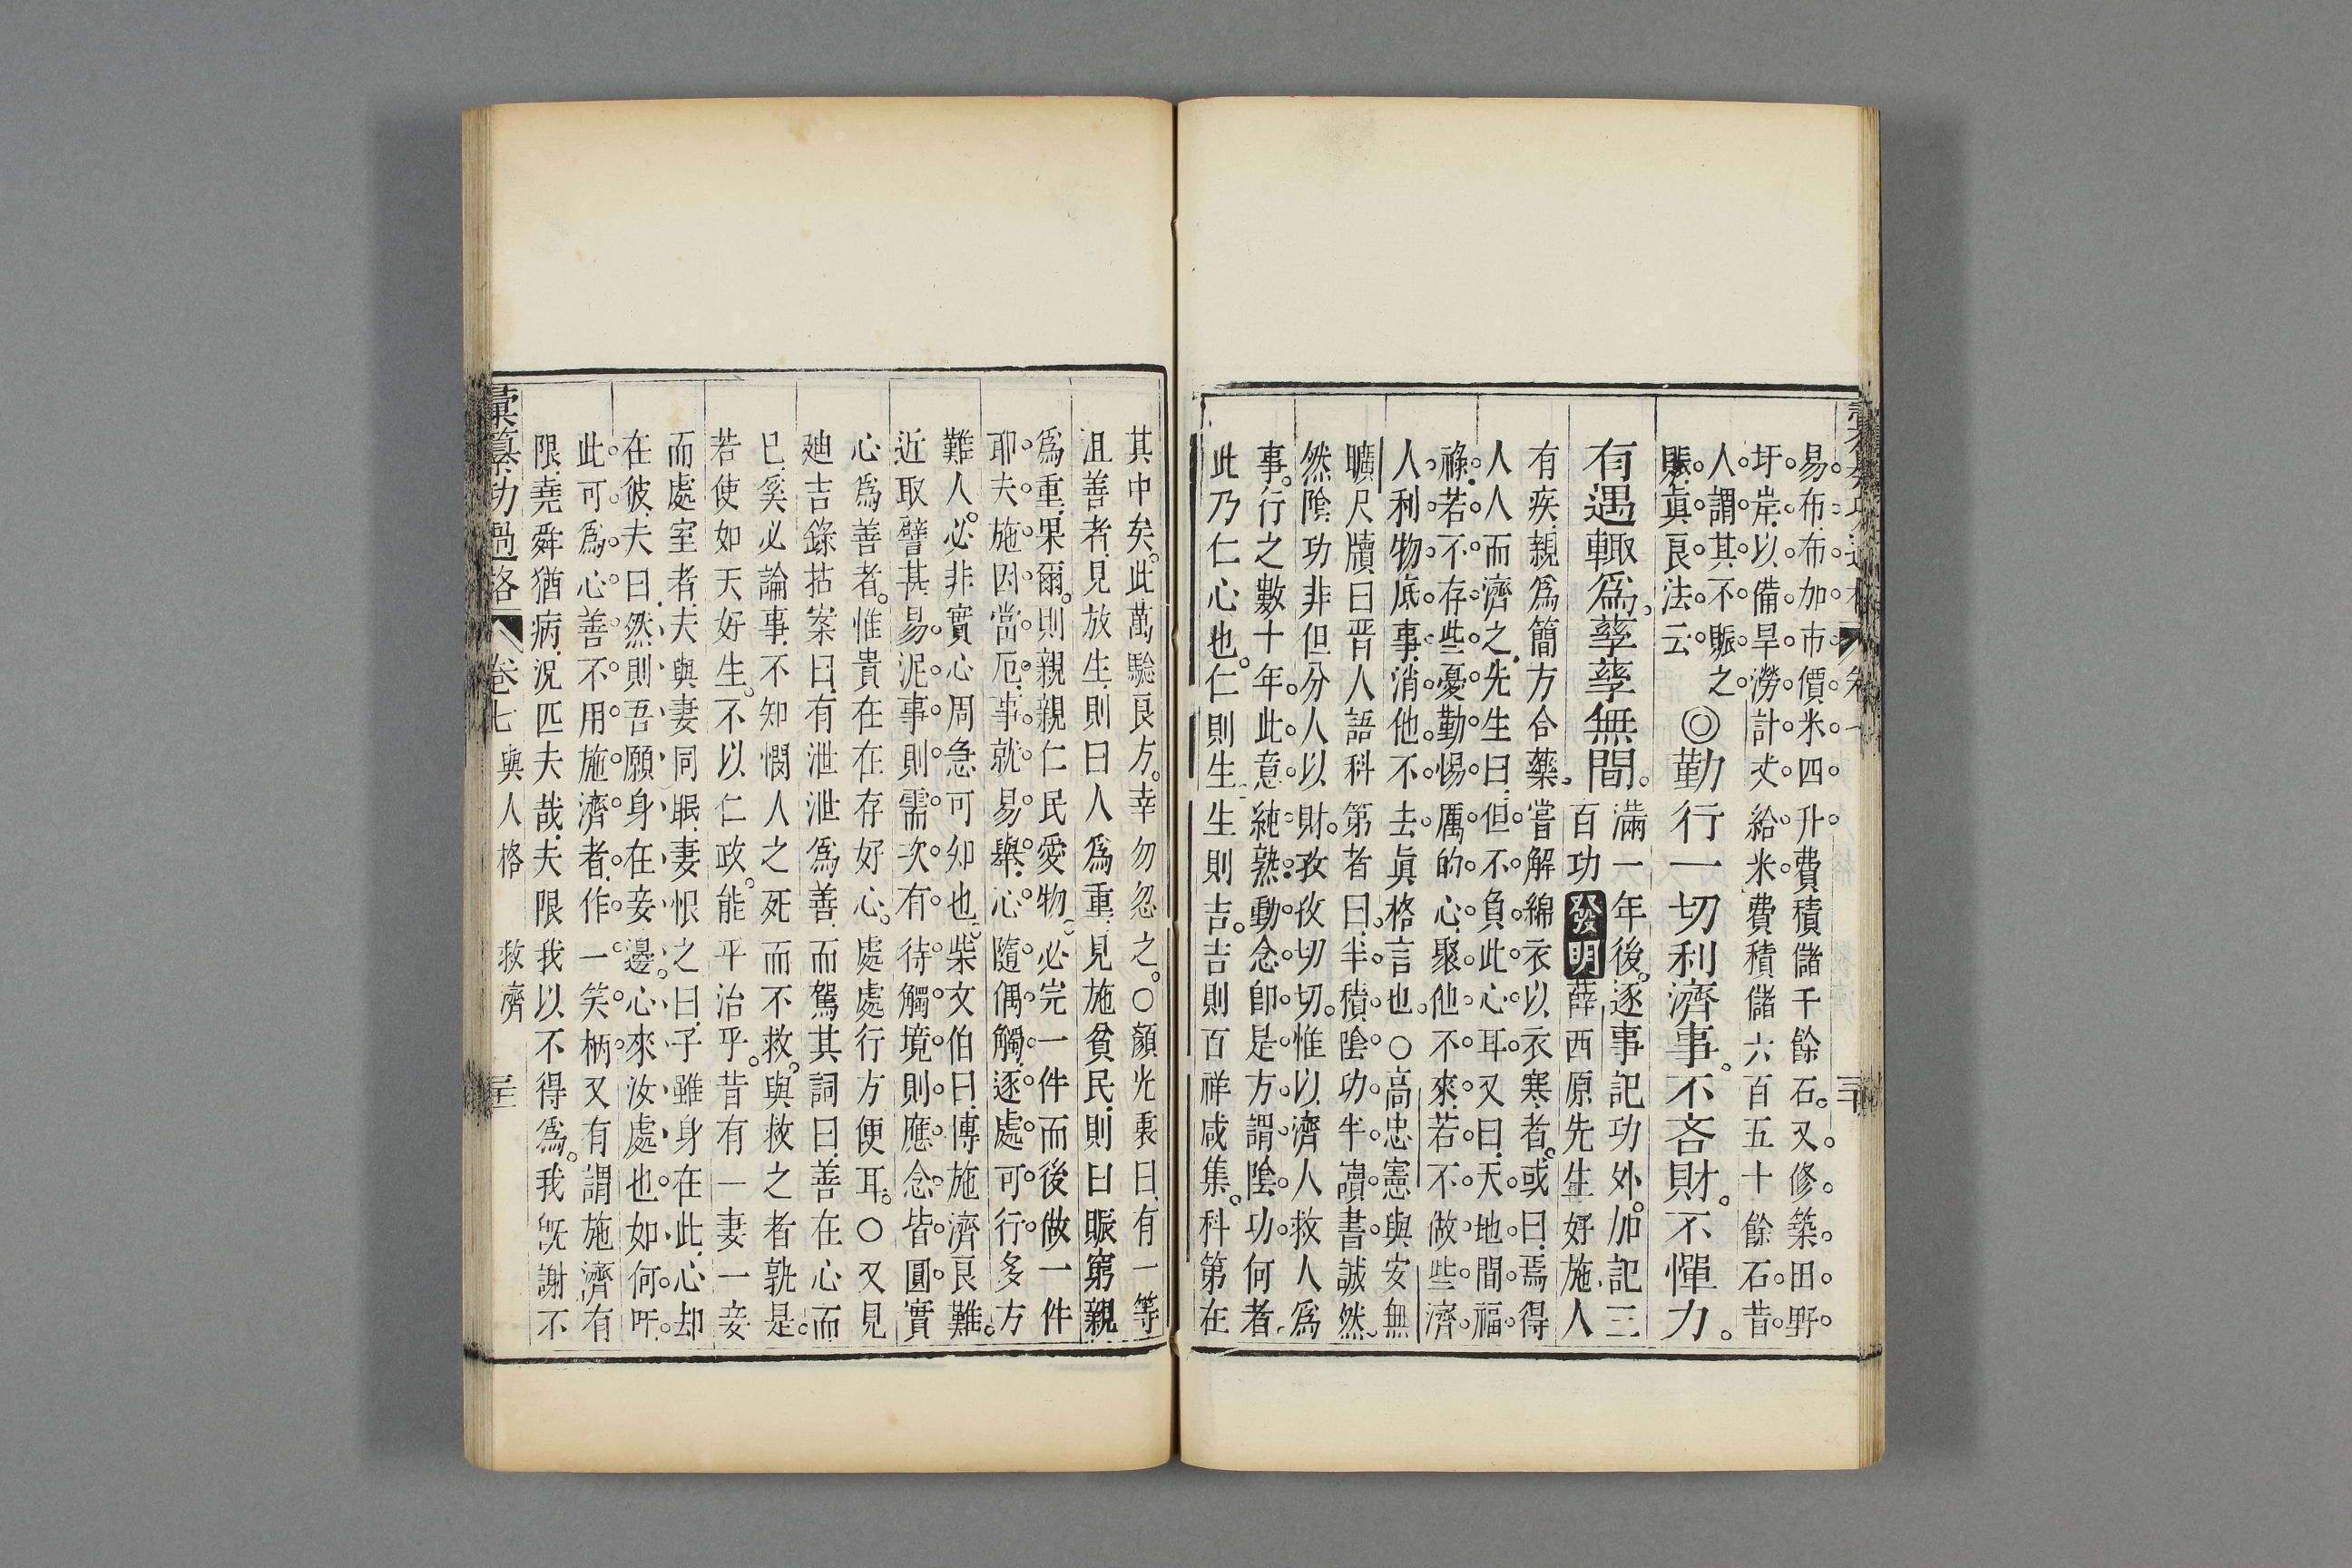 易布。布加市價。米四升。費積儲千餘石。又修築田野
圩岸。以備旱澇。計丈給米。費積儲六百五十餘石。昔
人謂其不賑之
賑。真良法云。◎勤行一切利濟事。不吝財。不憚力。
有遇輒爲。孳孳無間。滿一年後。逐事記功外。加記三
百功 發明 薛西原先生好施。人
有疾。親爲簡方合藥。嘗解綿衣以衣寒者。或曰。焉得
人人而濟之。先生曰。但不負此心耳。又曰。天地間福
祿。若不存些憂勤惕厲的心。聚他不來。若不做些濟
人利物底事。消他不去。真格言也。○高忠憲與安無
曠尺牘曰。晋人語科第者曰。半積陰功半讀書。誠然
然陰功非但分人以財。孜孜切切。惟以濟人救人爲
事。行之數十年。此意純熟。動念卽是。方謂陰功。何者。
此乃仁心也。仁則生。生則吉。吉則百祥咸集。科第在
其中矣。此萬騐良方。幸勿忽之。○顏光衷曰。有一等
沮善者。見放生。則曰人爲重。見施貧民。則曰賑窮親
爲重。果爾。則親親仁民愛物。必完一件而後做一件
耶。夫施因當厄。事就易舉。心隨偶觸。逐處可行。多方
難人。必非實心周急可知也。柴文伯曰。博施濟良難。
近取譬甚易。泥事則需次有待。觸境則應念皆圓。實
心爲善者。惟貴在在存好心。處處行方便耳。○又見
廸吉錄拈案曰。有泄泄爲善。而駕其詞曰。善在心而
已。奚必論事。不知憫人之死而不救。與救之者孰是。
若使如天好生。不以仁政。能平治乎。昔有一妻一妾
而處室者。夫與妻同眠。妻恨之曰。子雖身在此。心却
在彼。夫曰。然則吾願身在妾邊。心來汝處也。如何。吁。
此可爲心善不用施濟者。作一笑柄。又有謂施濟有
限。堯舜猶病。況匹夫哉。夫限我以不得爲。我旣謝不
彙纂功過格 卷七 與人格 救濟